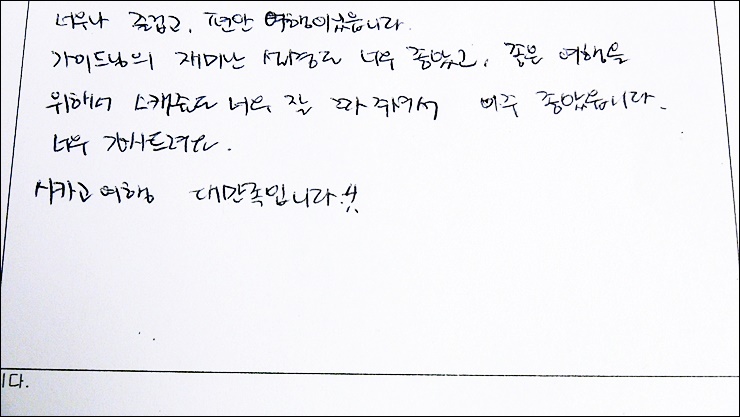 너무나 즐겁고, 편안 여행이었읍니다.
가이드님의 재미난 설명도 너무 좋았고, 좋은 여행을
위해서 스케쥴도 너무 잘 짜주셔서 아주 좋았읍니다.
너무 감사드려요.
시카고 여행 대만족입니다!!
니다.